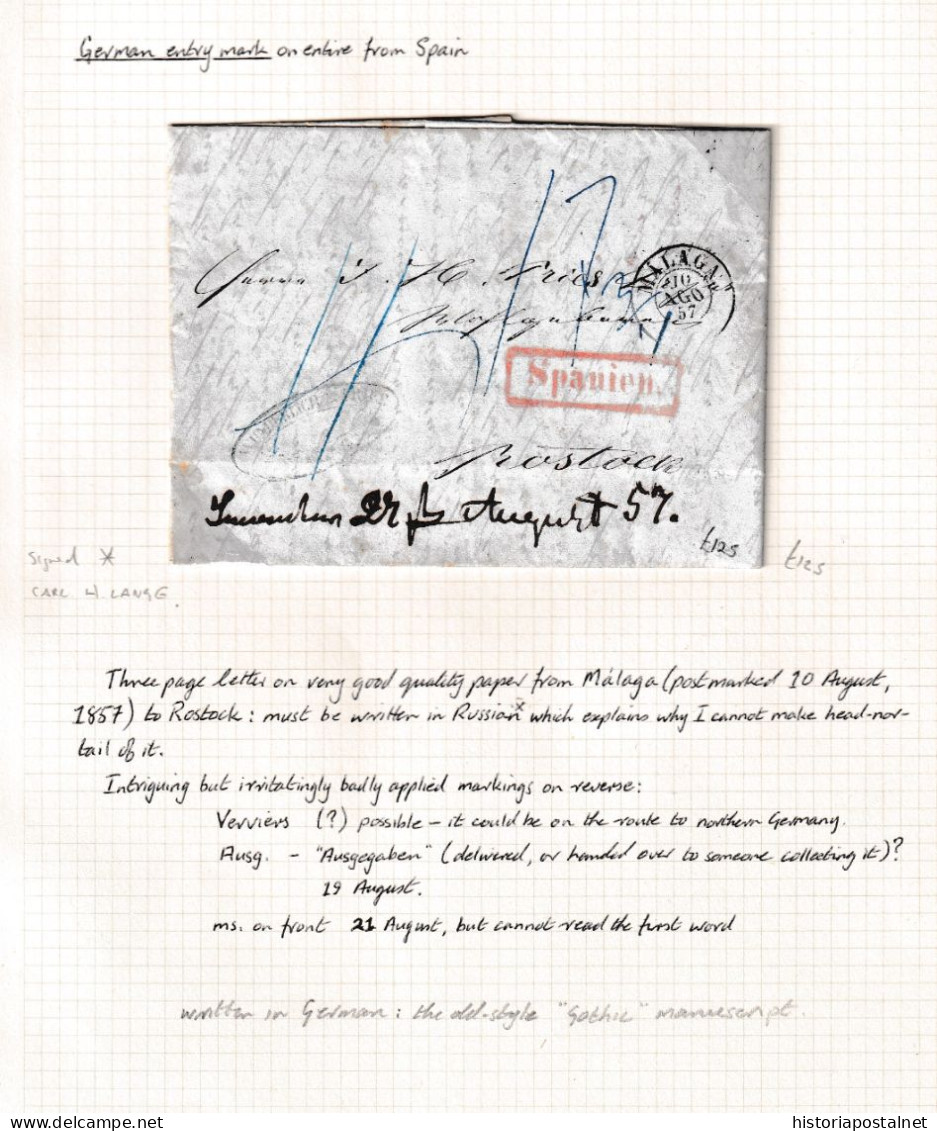 German entry mark on entire from Spain
MÁLAGA
10
AGO
57
Herrn J. H. Fries
Spanien.
Rostock
August 57.
£125
Signed * £125
CARL H. LANGE.
Three page letter on very good quality paper from Málaga (postmarked 10 August,
1857) to Rostock: must be written in Russian* which explains why I cannot make head-nor-
tail of it.
Intriguing but irritatingly badly applied markings on reverse:
Verviers (?) possible - it could be on the route to northern Germany.
Ausg. - "Ausgegaben" (delivered, or handed over to someone collecting it)?
19 August.
ms. on front 21 August, but cannot read the first word
written in German: the old-style "Gothic" manuscript.
historiapostalnet